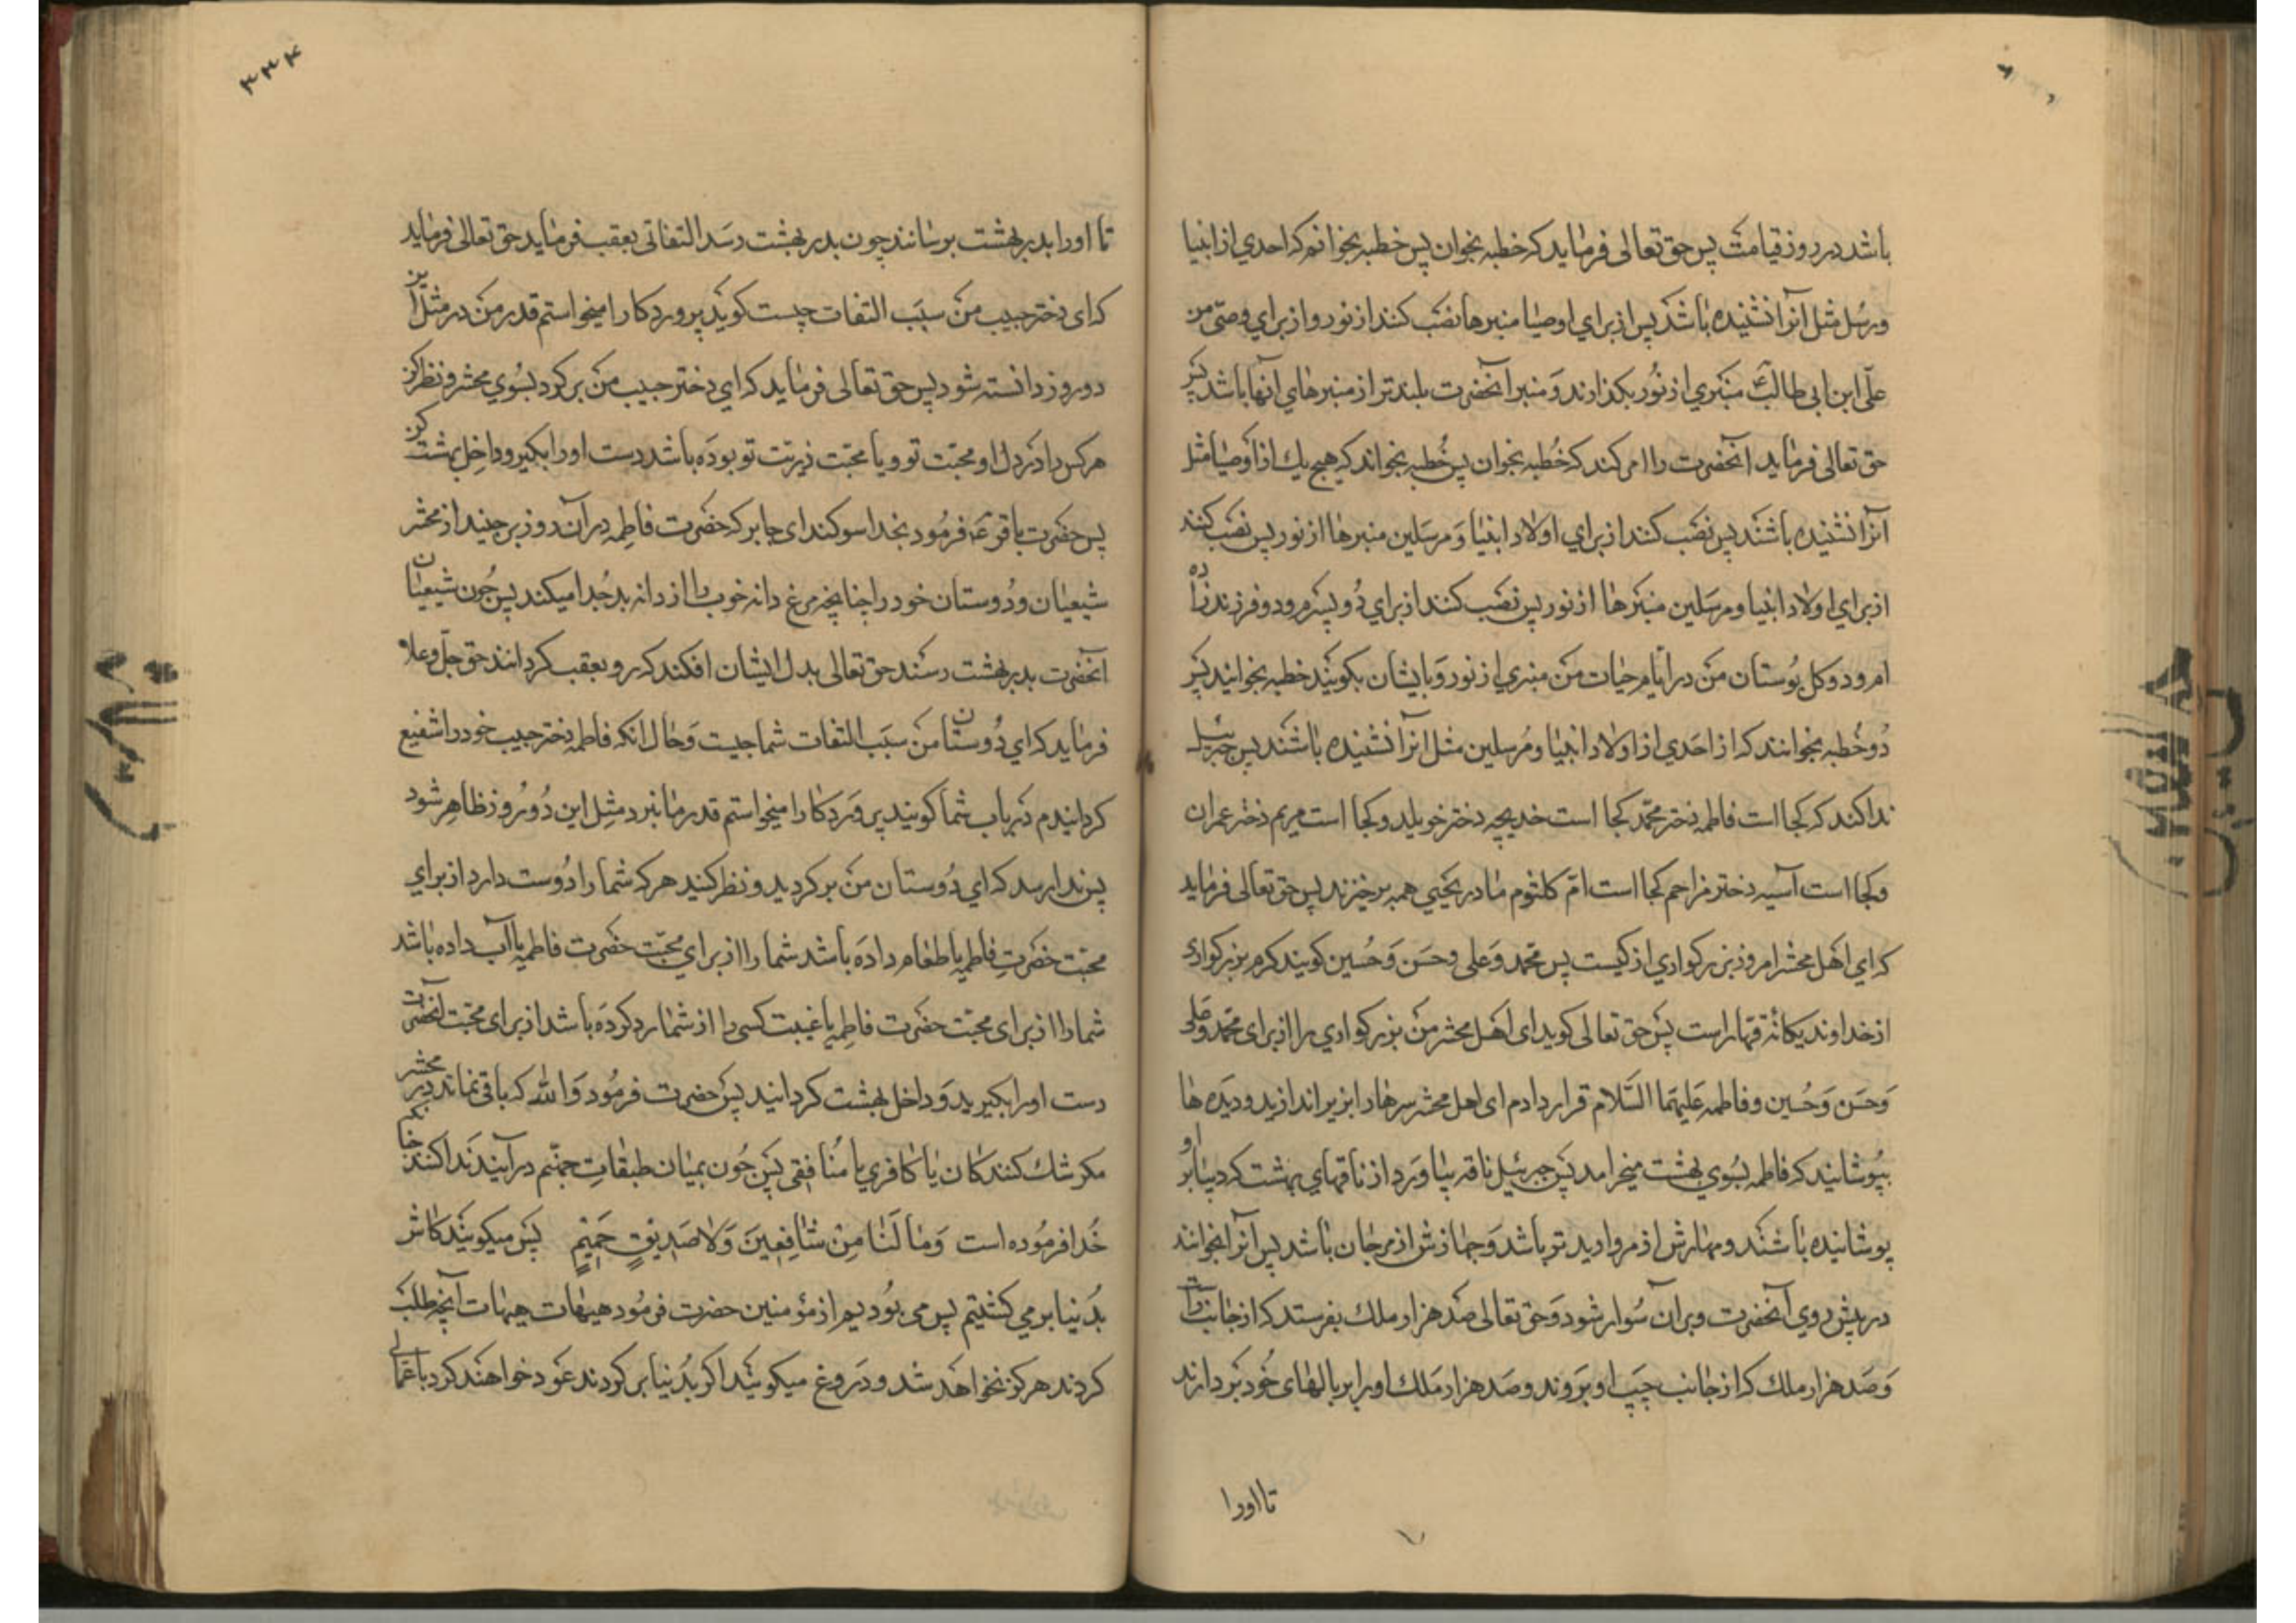 باشد در روز قیامت پس حق تعالی فرماید که خطبه بخوان پس خطبه بخوانم که احدی از انبیا
و رسل مثل آنرا نشنیده باشند پس از برای اوصیا منبرها نصب کنند از نور و از برای وصی من
علی ابن ابی طالب ع منبری از نور بگذارند و منبر آنحضرت بلندتر از منبرهای آنها باشد پس
حق تعالی فرماید آنحضرت را امر کند که خطبه بخوان پس خطبه بخواند که هیچ یک از اوصیا مثل
آنرا نشنیده باشند پس نصب کنند از برای اولاد انبیا و مرسلین منبرها از نور پس نصب کنند
از برای اولاد انبیا و مرسلین منبرها از نور پس نصب کنند از برای دو پسرم و دو فرزندزاده
ام و دو گل بوستان من در ایام حیات من منبری از نور و بایشان بگویند خطبه بخوانید پس
دو خطبه بخوانند که از احدی از اولاد انبیا و مرسلین مثل آنرا نشنیده باشند پس جبرئیل
ندا کند که کجا است فاطمه دختر محمد کجا است خدیجه دختر خویلد و کجا است مریم دختر عمران
و کجا است آسیه دختر مزاحم کجا است ام کلثوم مادر یحیی همه برخیزند پس حق تعالی فرماید
که ای اهل محشر امروز بزرگواری از کیست پس محمد و علی و حسن و حسین گویند کرم بزرگواری
از خداوند یگانه قهار است پس حق تعالی گوید ای اهل محشر من بزرگواری را از برای محمد و علی
و حسن و حسین و فاطمه علیهما السلام قرار دادم ای اهل محشر سرها را بزیر اندازید و دیده ها
بپوشانید که فاطمه بسوی بهشت میخرامد پس جبرئیل ناقه بیاورد از ناقهای بهشت که دیبا بر او
پوشانیده باشند و مهارش از مروارید تر باشد و جهازش از مرجان باشد پس آنرا بخوانند
در پیش روی آنحضرت و بر آن سوار شود و حق تعالی صد هزار ملک بفرستد که از جانب راست
و صد هزار ملک که از جانب چپ او بروند و صد هزار ملک او را بر بالهای خود بردارند
تا او را
۳۳۴
تا او را بدر بهشت برسانند چون بدر بهشت رسد التفاتی بعقب فرماید حق تعالی فرماید
که ای دختر حبیب من سبب التفات چیست گوید پروردگارا میخواستم قدر من در مثل این
روز دانسته شود پس حق تعالی فرماید که ای دختر حبیب من برگرد بسوی محشر و نظر کن
هر کس را در دل او محبت تو و یا محبت ذریت تو بوده باشد دست او را بگیر و داخل بهشت کن
پس حضرت باقر ع فرمود بخدا سوگند ای جابر که حضرت فاطمه در آن روز برچیند از محشر
شیعیان و دوستان خود را چنانچه مرغ دانه خوب را از دانه بد جدا میکند پس چون شیعیان
آنحضرت بدر بهشت رسند حق تعالی بدل ایشان افکند که رو بعقب گردانند حق جل و علا
فرماید که ای دوستان من سبب التفات شما چیست و حال آنکه فاطمه دختر حبیب خود را شفیع
گردانیدم در باب شما گویند پروردگارا میخواستم قدر ما نیز در مثل این روز ظاهر شود
پس ندا رسد که ای دوستان من برگردید و نظر کنید هر که شما را دوست دارد از برای
محبت حضرت فاطمه یا طعام داده باشد شما را از برای محبت حضرت فاطمه یا آب داده باشد
شما را از برای محبت حضرت فاطمه یا غیبت کسی را از شما رد کرده باشد از برای محبت آنحضرت
دست او را بگیرید و داخل بهشت گردانید پس حضرت فرمود والله که باقی نماند در محشر
مگر شک کنندکان یا کافری یا منافقی پس چون بمیان طبقات جهنم درآیند ندا کنند چنانچه
خدا فرموده است وَمَا لَنَا مِنْ شَافِعِينَ وَلَا صَدِيقٍ حَمِيمٍ پس میگویند کاش
بدنیا برمی گشتیم پس می بودیم از مؤمنین حضرت فرمود هیهات هیهات آنچه طلب
کردند هرگز نخواهد شد و دروغ میگویند اگر بدنیا برگردند عود خواهند کرد باعمالی